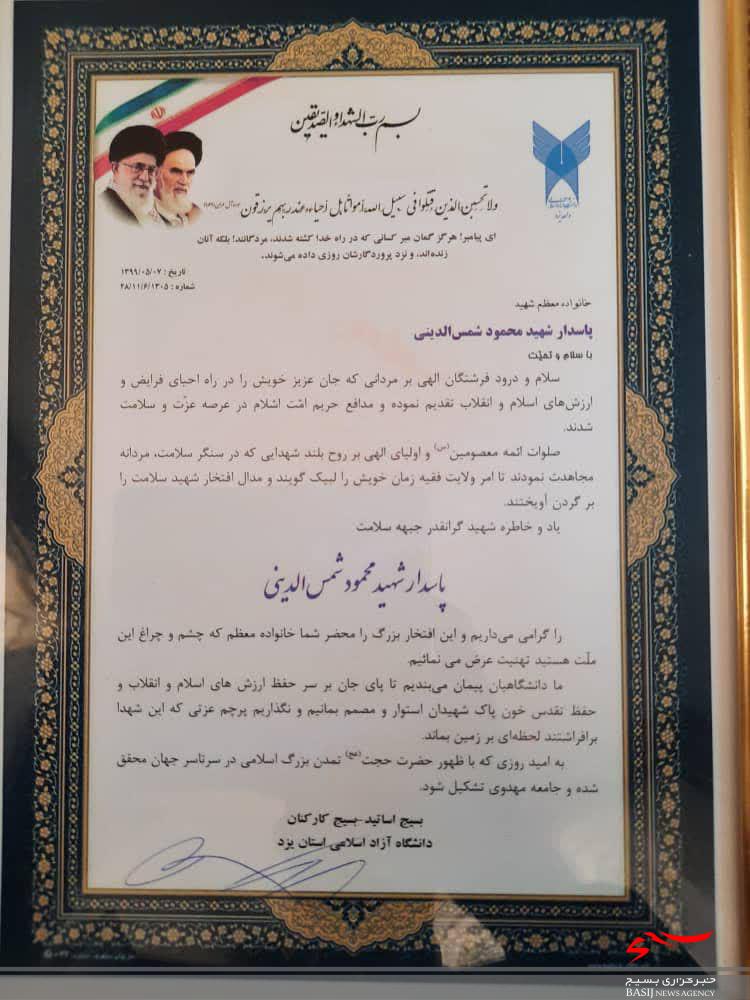 بسم رب الشهداء و الصدیقین
ولا تحسبن الذین قتلوا فی سبیل الله امواتا بل احیاء عند ربهم یرزقون
ای پیامبر! هرگز گمان مبر کسانی که در راه خدا کشته شدند، مردگانند! بلکه آنان
زنده‌اند، و نزد پروردگارشان روزی داده می‌شوند.
تاریخ : ۱۳۹۹/۰۵/۰۷
شماره : ۲۸/۱۱/۶/۱۳۰۵
خانواده معظم شهید
پاسدار شهید محمود شمس‌الدینی
با سلام و تحیّت
سلام و درود فرشتگان الهی بر مردانی که جان عزیز خویش را در راه احیای فرایض و
ارزش‌های اسلام و انقلاب تقدیم نموده و مدافع حریم امّت اسلام در عرصه عزّت و سلامت
شدند.
صلوات ائمه معصومین(س) و اولیای الهی بر روح بلند شهدایی که در سنگر سلامت، مردانه
مجاهدت نمودند تا امر ولایت فقیه زمان خویش را لبیک گویند و مدال افتخار شهید سلامت را
بر گردن آویختند.
یاد و خاطره شهید گرانقدر جبهه سلامت
پاسدار شهید محمود شمس الدینی
را گرامی می‌داریم و این افتخار بزرگ را محضر شما خانواده معظم که چشم و چراغ این
ملّت هستید تهنیت عرض می نمائیم.
ما دانشگاهیان پیمان می‌بندیم تا پای جان بر سر حفظ ارزش های اسلام و انقلاب و
حفظ تقدس خون پاک شهیدان استوار و مصمم بمانیم و نگذاریم پرچم عزتی که این شهدا
برافراشتند لحظه‌ای بر زمین بماند.
به امید روزی که با ظهور حضرت حجت(عج) تمدن بزرگ اسلامی در سرتاسر جهان محقق
شده و جامعه مهدوی تشکیل شود.
بسیج اساتید-بسیج کارکنان
دانشگاه آزاد اسلامی استان یزد
خبرگزاری بسیج
BASIJ NEWS AGENCY